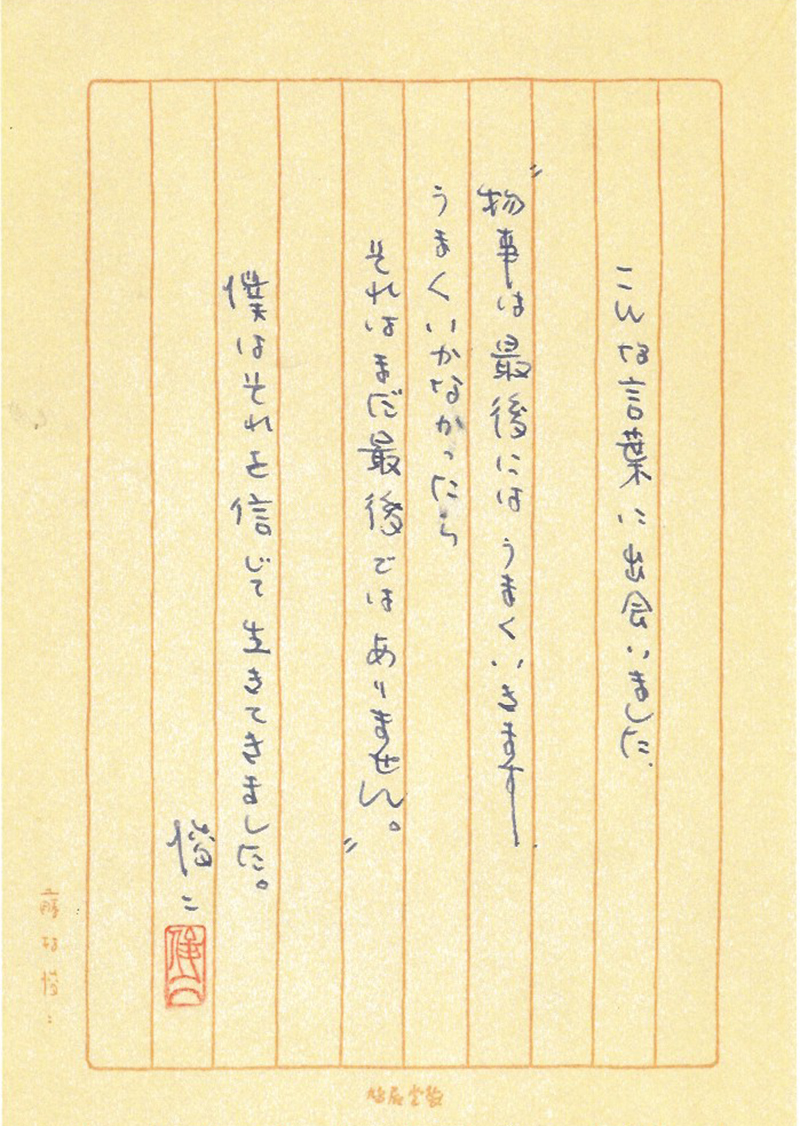 こんな言葉に出会いました
〝物事は最後にはうまくいきます
うまくいかなかったら
それはまだ最後ではありません。〟
僕はそれを信じて生きてきました。
俊二